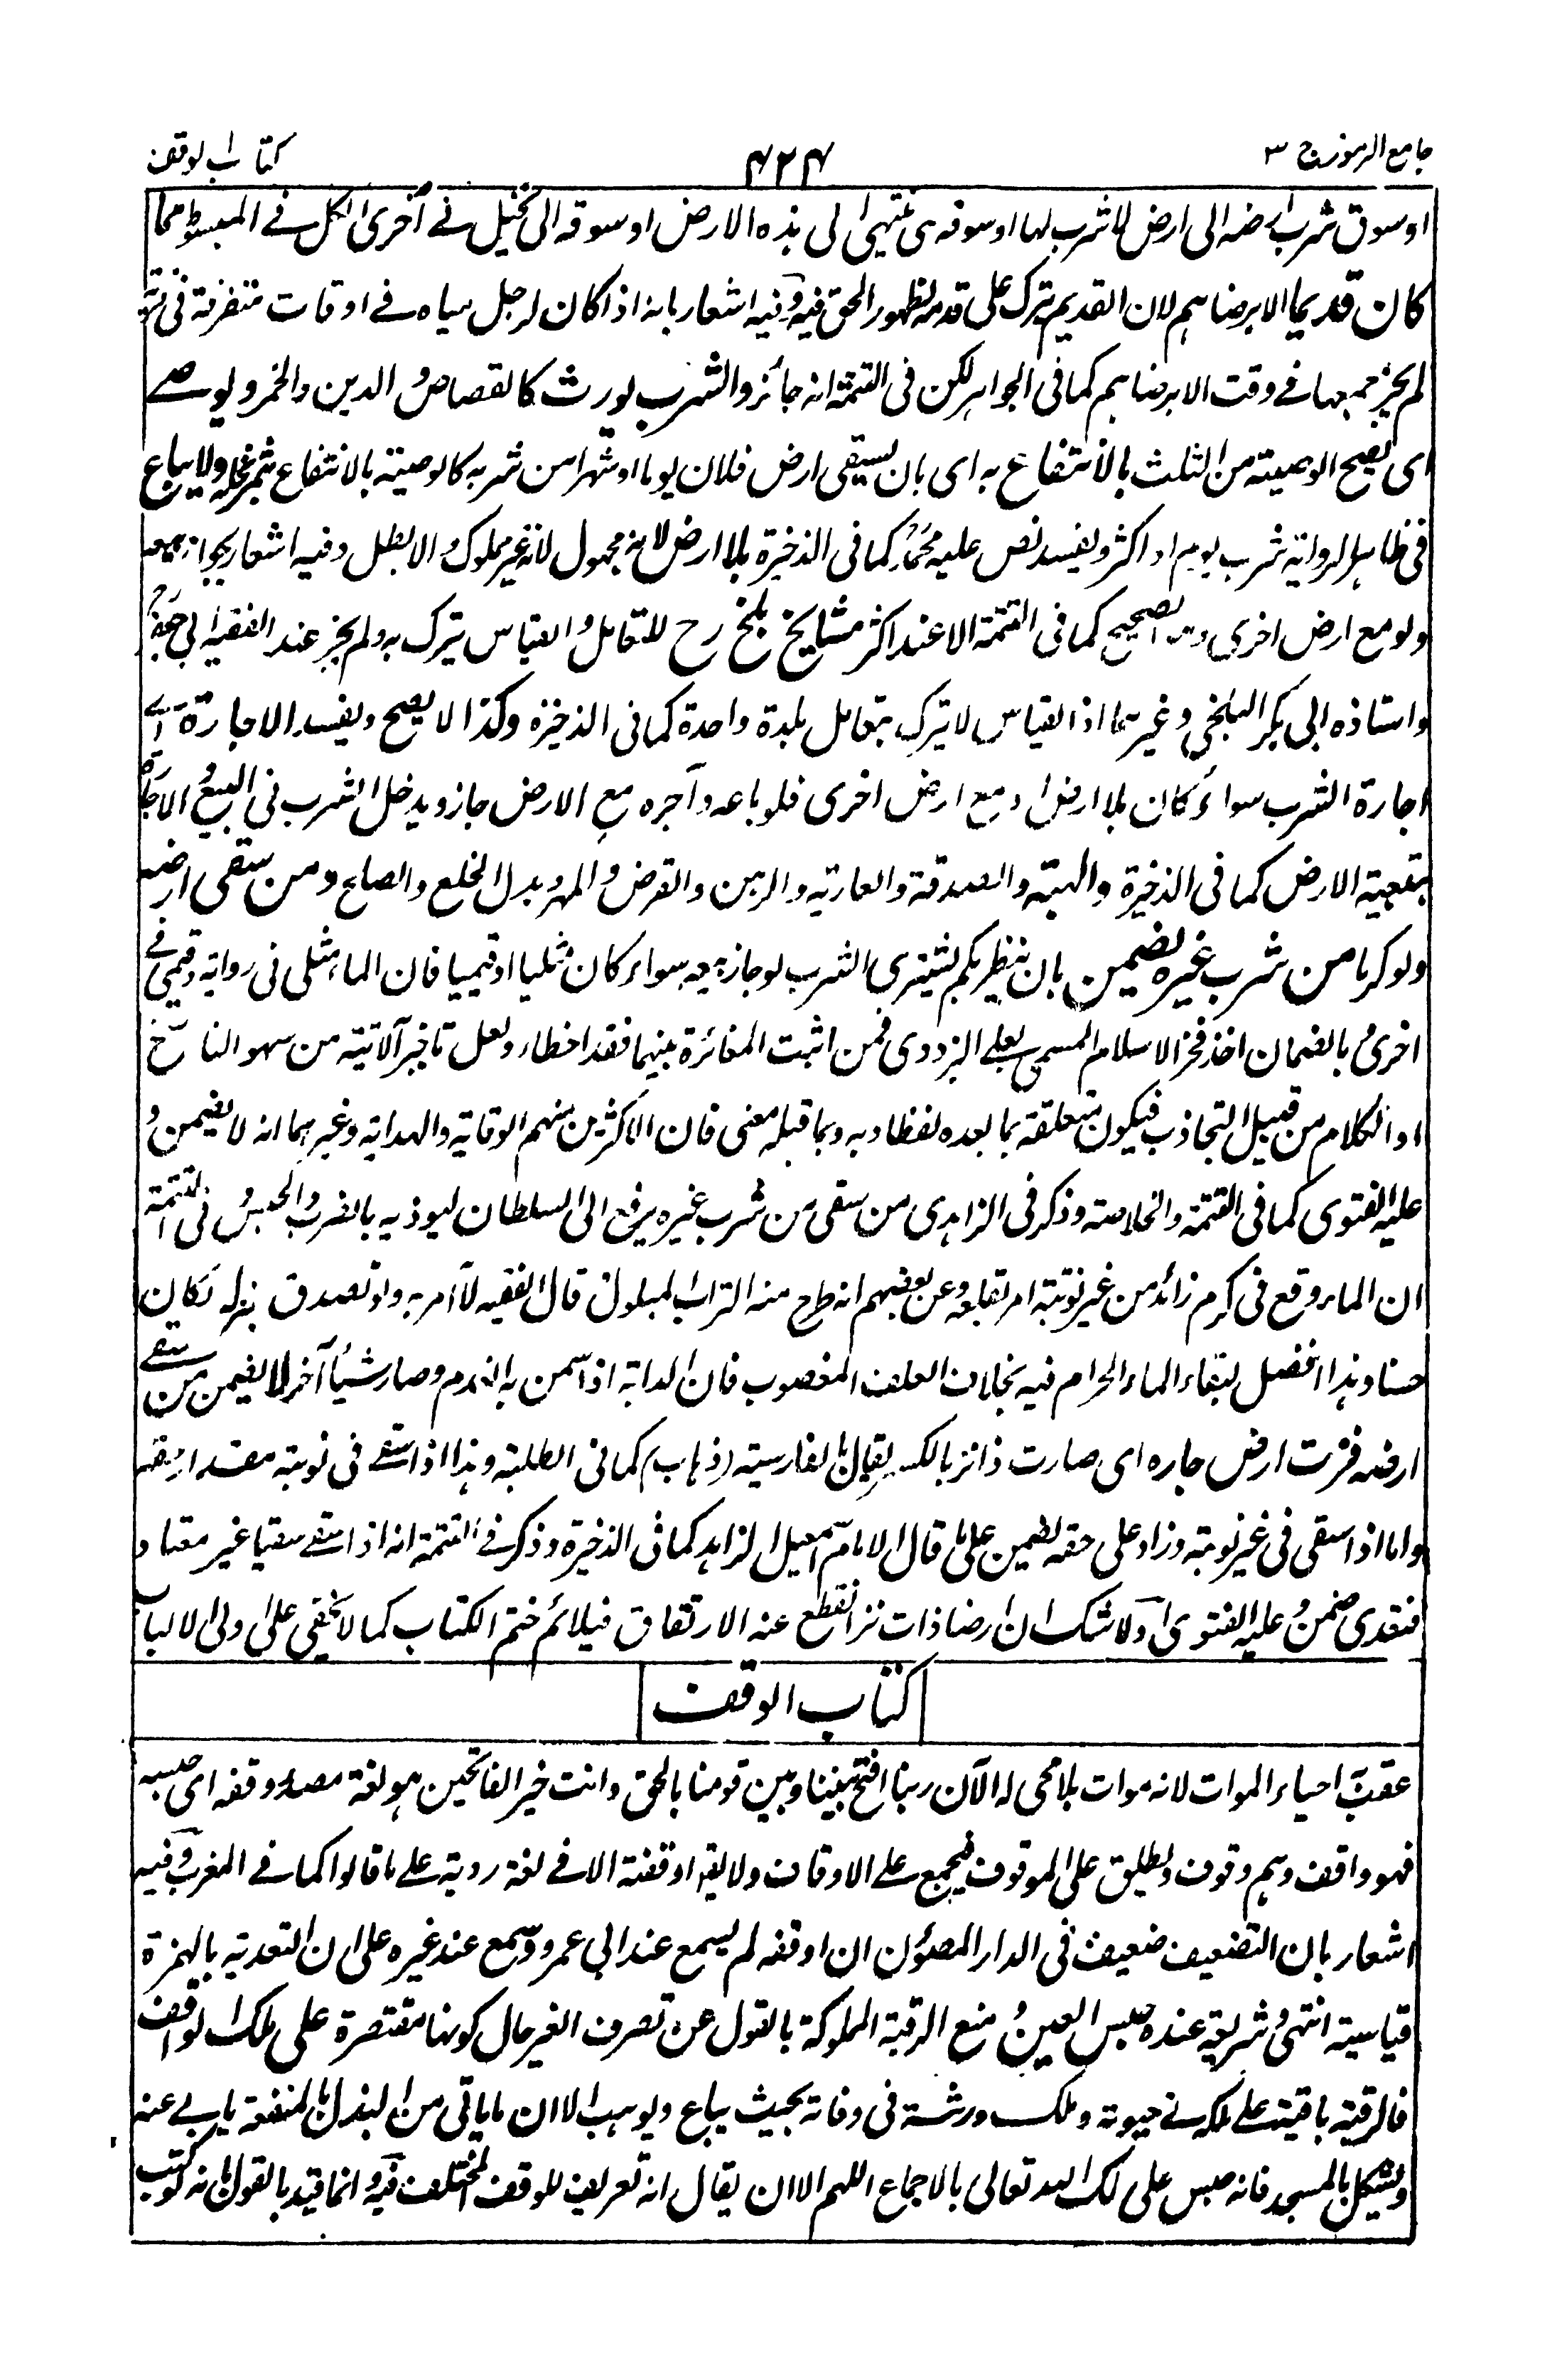 جامع الرموز ج ٣
٤٢٤
كتاب الوقف
او سوق شرب ارضه الى ارض لا شرب لها او سوقه حتى ينتهى الى هذه الارض او سوقه الى نخيل فى اخرى الكل فے المبسوط مما
كان قديما الا برضاهم لان القديم يترك على قدمه لظهور الحق فيه وفيه اشعار بانه اذا كان لرجل مياه فے اوقات متفرقة فى
لم يجز جمعها فے وقت الا برضاهم كما فى الجواهر لكن فى التتمة انه جائز والشرب يورث كالقصاص والدين والخمر ويوصے
اى يصح الوصية من الثلث بالانتفاع به اى بان يسقى ارض فلان يوما او شهرا من شربه كالوصية بالانتفاع بثمر نخله ولا يباع
فى ظاهر الرواية شرب يوم او اكثر ويفسد نص عليه محمد كما فى الذخيرة بلا ارض لانه مجهول لانه غير مملوك والا بطل وفيه اشعار بجواز بيعه
ولو مع ارض اخرى وهو الصحيح كما فى التتمة الا عند اكثر مشايخ بلخ رح للتعامل والقياس يترك به ولم يجز عند الفقيه ابى جعفر
واستاذه ابى بكر البلخى وغيرهما اذ القياس لا يترك بتعامل بلدة واحدة كما فى الذخيرة وكذا لا يصح ويفسد الاجارة اے
اجارة الشرب سواء كان بلا ارض او مع ارض اخرى فلو باعه وآجره مع الارض جاز ويدخل الشرب فى البيع والاجارة
بتبعية الارض كما فى الذخيرة والهبة والصدقة والعارية والرهن والقرض والمهر وبدل الخلع والصلح ومن سقى ارضه
ولو كرما من شرب غيره يضمن بان ينظر بكم يشترى الشرب لو جاز بيعه سواء كان مثليا او قيميا فان الماء مثلى فى رواية وقيمى فے
اخرى وبالضمان اخذ فخر الاسلام المسمى بعلے البزدوى فمن اثبت المغائرة بينهما فقد اخطاء ولعل تاخير آلاتية من سهو الناسخ
او الكلام من قبيل التجاذب فيكون متعلقة بما بعده لفظا وبه وبما قبله معنى فان الاكثرين منهم الوقاية والهداية وغيرهما انه لا يضمن و
عليه الفتوى كما فى التتمة والخلاصة وذكر فى الزاهدى من سقى من شرب غيره يرفع الى السلطان ليوذيه بالضرب والحبس وفى التتمة
ان الماء وقع فى كرم زائد من غير نوبته امر بقلعه وعن بعضهم انه طرح منه التراب المبلول قال الفقيه لا آمر به ولو تصدق بنزله لكان
حسنا وهذا افضل لبقاء الماء الحرام فيه بخلاف العلف المغصوب فان الدابة اذا سمن به انعدم وصار شيئا آخر لا يضمن من سقے
ارضه فنزت ارض جاره اى صارت ذا نز بالكسر يقال بالفارسية (زهاب) كما فى الطلبة وهذا اذا سقے فى نوبته مقدار حقه
واما اذا سقى فى غير نوبته وزاد على حقه يضمن على ما قال الامام اسمعيل الزاهد كما فى الذخيرة وذكر فے التتمة انه اذا سقے سقيا غير معتاد
فتعدى ضمن وعليه الفتوى ولا شك ان ارضا ذات نز انقطع عنه الارتفاق فيلائم ختم الكتاب كما لا يخفى على اولى الالباب
كتاب الوقف
عقب احياء الموات لانه موات بلا محى له الآن ربنا افتح بيننا وبين قومنا بالحق وانت خير الفاتحين هو لغة مصدر وقفه اى حبسه
فهو واقف وهم وقوف ويطلق على الموقوف فيجمع علے الاوقاف ولا يقال اوقفته الا فے لغة ردية علے ما قالوا كما فے المغرب وفيه
اشعار بان التضعيف ضعيف فى الدار المصؤن ان اوقفه لم يسمع عند ابى عمرو وسمع عند غيره على ان التعدية بالهمزة
قياسية انتهى وشريعة عنده حبس العين ومنع الرقبة المملوكة بالقول عن تصرف الغير حال كونها مقتصرة على ملك الواقف
فالرقبة باقية علے ملكه فے حيوته وملك ورثته فى وفاته بحيث يباع ويوهب الا ان ما ياتى من النذر بالمنفعة يابے عنه
ويشكل بالمسجد فانه حبس على ملك الله تعالى بالاجماع اللهم الا ان يقال انه تعريف للوقف المختلف فيه وانما قيد بالقول لانه لو كتب